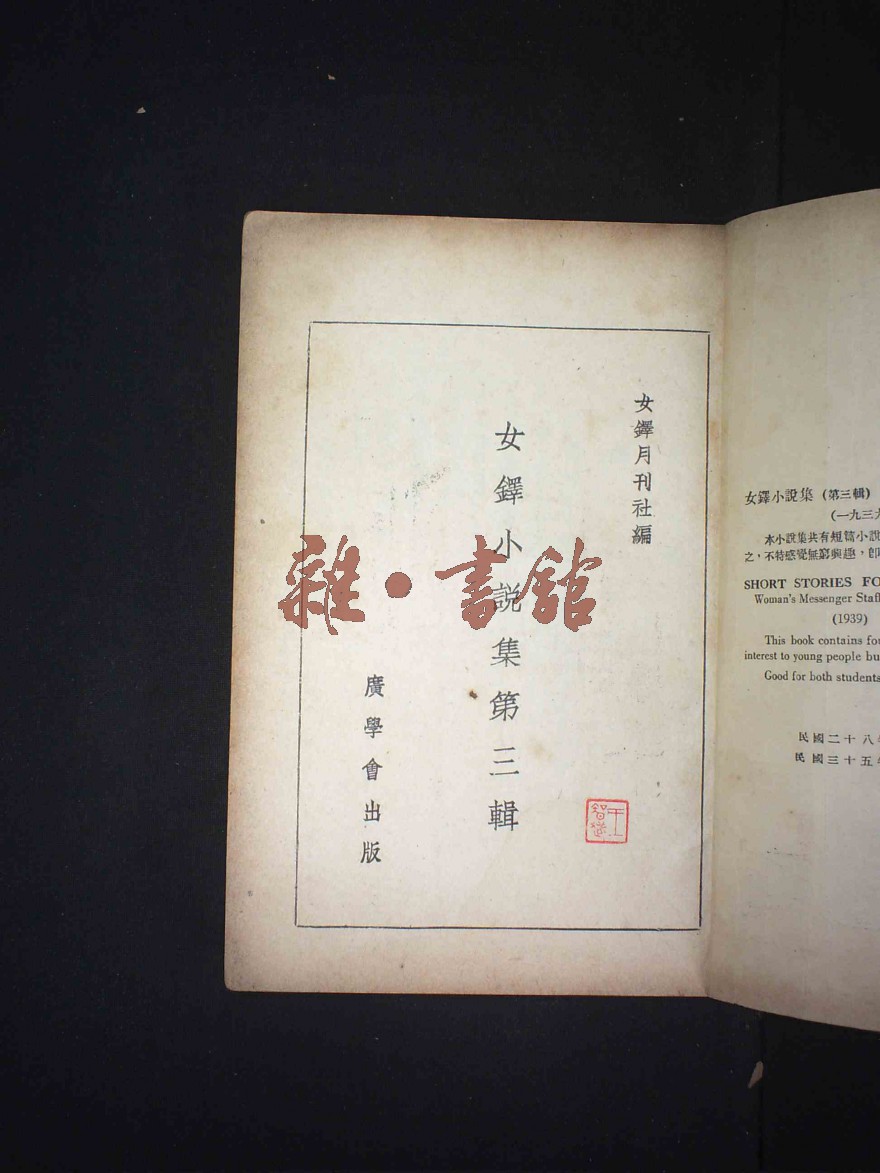 女鐸月刊社編
女鐸小説集第三輯
廣學會出版
雜·書館
女鐸小說集（第三輯）
（一九三九
本小說集共有短篇小說
之，不特感覺無窮興趣，
SHORT STORIES FO
Woman's Messenger Staff
(1939)
This book contains fou
interest to young people bu
Good for both students
民國二十八年
民國三十五年